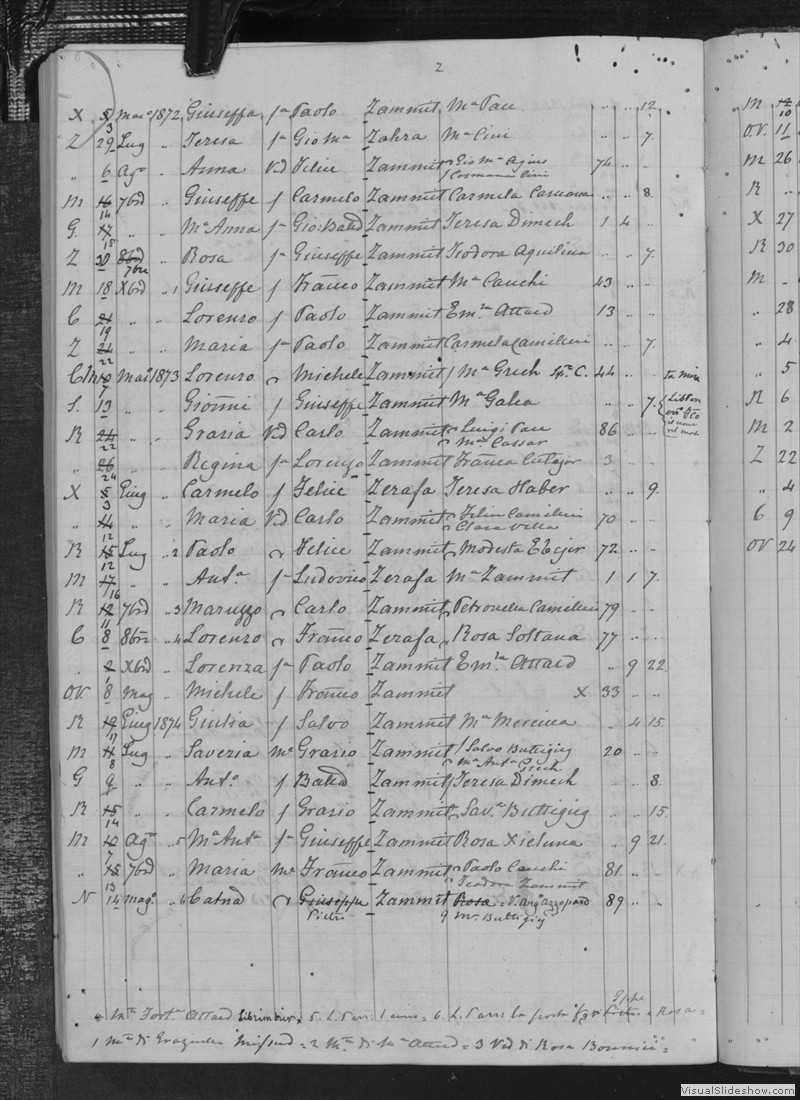 2
X 5 3 Mar° 1872 Giuseppa fa Paolo Zammit Ma Pace .. .. 12
Z 29 Lug .. Teresa fa Gio Ma Zahra Ma Cini .. .. 7.
.. 6 Ag° .. Anna Vd Felice Zammit Gio Ma Agius 74 .. ..
Cosmanna Cini
M 16 14 7bre .. Giuseppe f Carmelo Zammit Carmela Caruana .. .. 8.
G. 17 15 .. .. Ma Anna fa Gio: Batta Zammit Teresa Dimech 1 4 ..
Z 30 8bre 7bre .. Rosa fa Giuseppe Zammit Teodora Aquilina .. .. 7.
M 18 Xbre .. 1 Giuseppe f Franco Zammit Ma Cauchi 43 .. ..
C 21 19 .. .. Lorenzo f Paolo Zammit Attard 13 .. ..
Z 24 22 .. .. Maria fa Paolo Zammit Carmela Camilleri .. .. 7.
7 Mar° 1873 Lorenzo Michele Zammit Ma Grech 44 .. ..
S. 13 .. .. Gionni f Giuseppe Zammit Ma Galea .. .. 7.
R 24 22 .. .. Grazia Vd Carlo Zammit Luigi Pace 86 .. ..
Ma Cassar
.. 26 24 .. .. Regina fa Lorenzo Zammit Franca Cutajar 3 .. ..
X 5 3 Giug .. Carmelo f Felice Zerafa Teresa Haber .. .. 9.
.. 14 12 .. .. Maria Vd Carlo Zammit Felice Camilleri 70 .. ..
Clara Vella
R 15 12 Lug .. 2 Paolo Felice Zammit Modesta 72 .. ..
M 17 16 .. .. Anta fa Ludovico Zerafa Ma Zammit 1 1 7.
R 12 11 7bre .. 3 Maruzzo Carlo Zammit Petronella Camilleri 79 .. ..
C 8 8bre .. 4 Lorenzo Franco Zerafa Rosa Soltana 77 .. ..
.. 2 1 Xbre .. Lorenza fa Paolo Zammit Attard .. 9 22
OV. 8 Mag .. Michele f Franco Zammit X 33 .. ..
R 19 17 Giug 1874 Giulia f Salvo Zammit Ma .. 4 15.
M 11 8 Lug .. Saveria me Grazio Zammit Salvo Buttigieg 20 .. ..
Ma Anta Grech
G 9 .. .. Ant° f Batta Zammit Teresa Dimech .. .. 8.
R 15 14 .. .. Carmelo f Grazio Zammit Sava Buttigieg .. .. 15.
M 10 7 Ag° .. 5 Ma Anta fa Giuseppe Zammit Rosa Xicluna .. 9 21.
.. 15 13 7bre .. Maria me Franco Zammit Paolo Cauchi 81 .. ..
Teodora Zammit
N 14 Mag° .. 6 Catna Giuseppe Zammit Rosa Azzopard 89 .. ..
Pietro Ma Buttigieg
4 Ma Fort° Attard 5. 1 anno = 6. la porta Rosa =
1 Ma di = 2 Ma di Ma Attard = 3 Vd di Rosa =
M 12 10
OV. 11
M 26
R ..
X 27
R 30
M -
.. 28
.. 4
.. 5
R 6
M 2
Z 22
.. 4
C 9
OV 24
VisualSlideshow.com